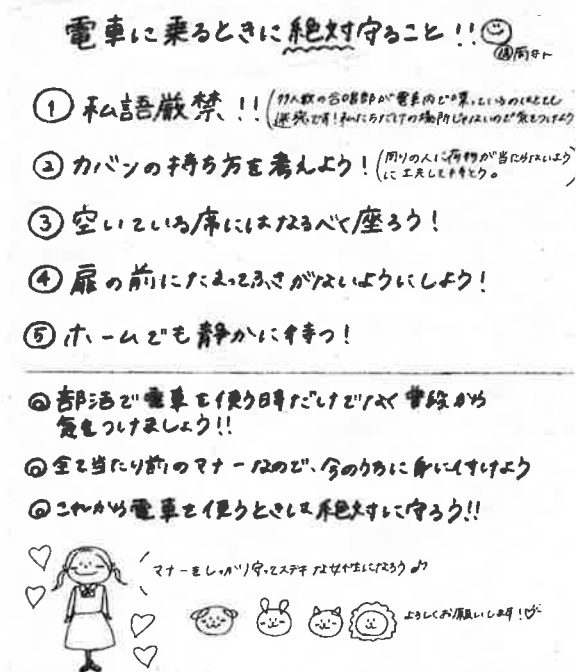 電車に乗るときに絶対守ること!!
① 私語厳禁!!
(大人数の合唱部が電車内で喋っているのはとても
迷惑です!私たちだけの場所じゃないので気をつけよう)
② カバンの持ち方を考えよう!
(周りの人に荷物が当たらないよう
に工夫して持とう。)
③ 空いている席にはなるべく座ろう!
④ 扉の前にたまってふさがないようにしよう!
⑤ ホームでも静かに待つ!
◎ 部活で電車を使う時だけでなく普段から
気をつけましょう!!
◎ 全て当たり前のマナーなので、今のうちに身に付けよう
◎ これから電車を使うときは絶対に守ろう!!
マナーをしっかり守ってステキな女性になろう♪
よろしくお願いします!♡